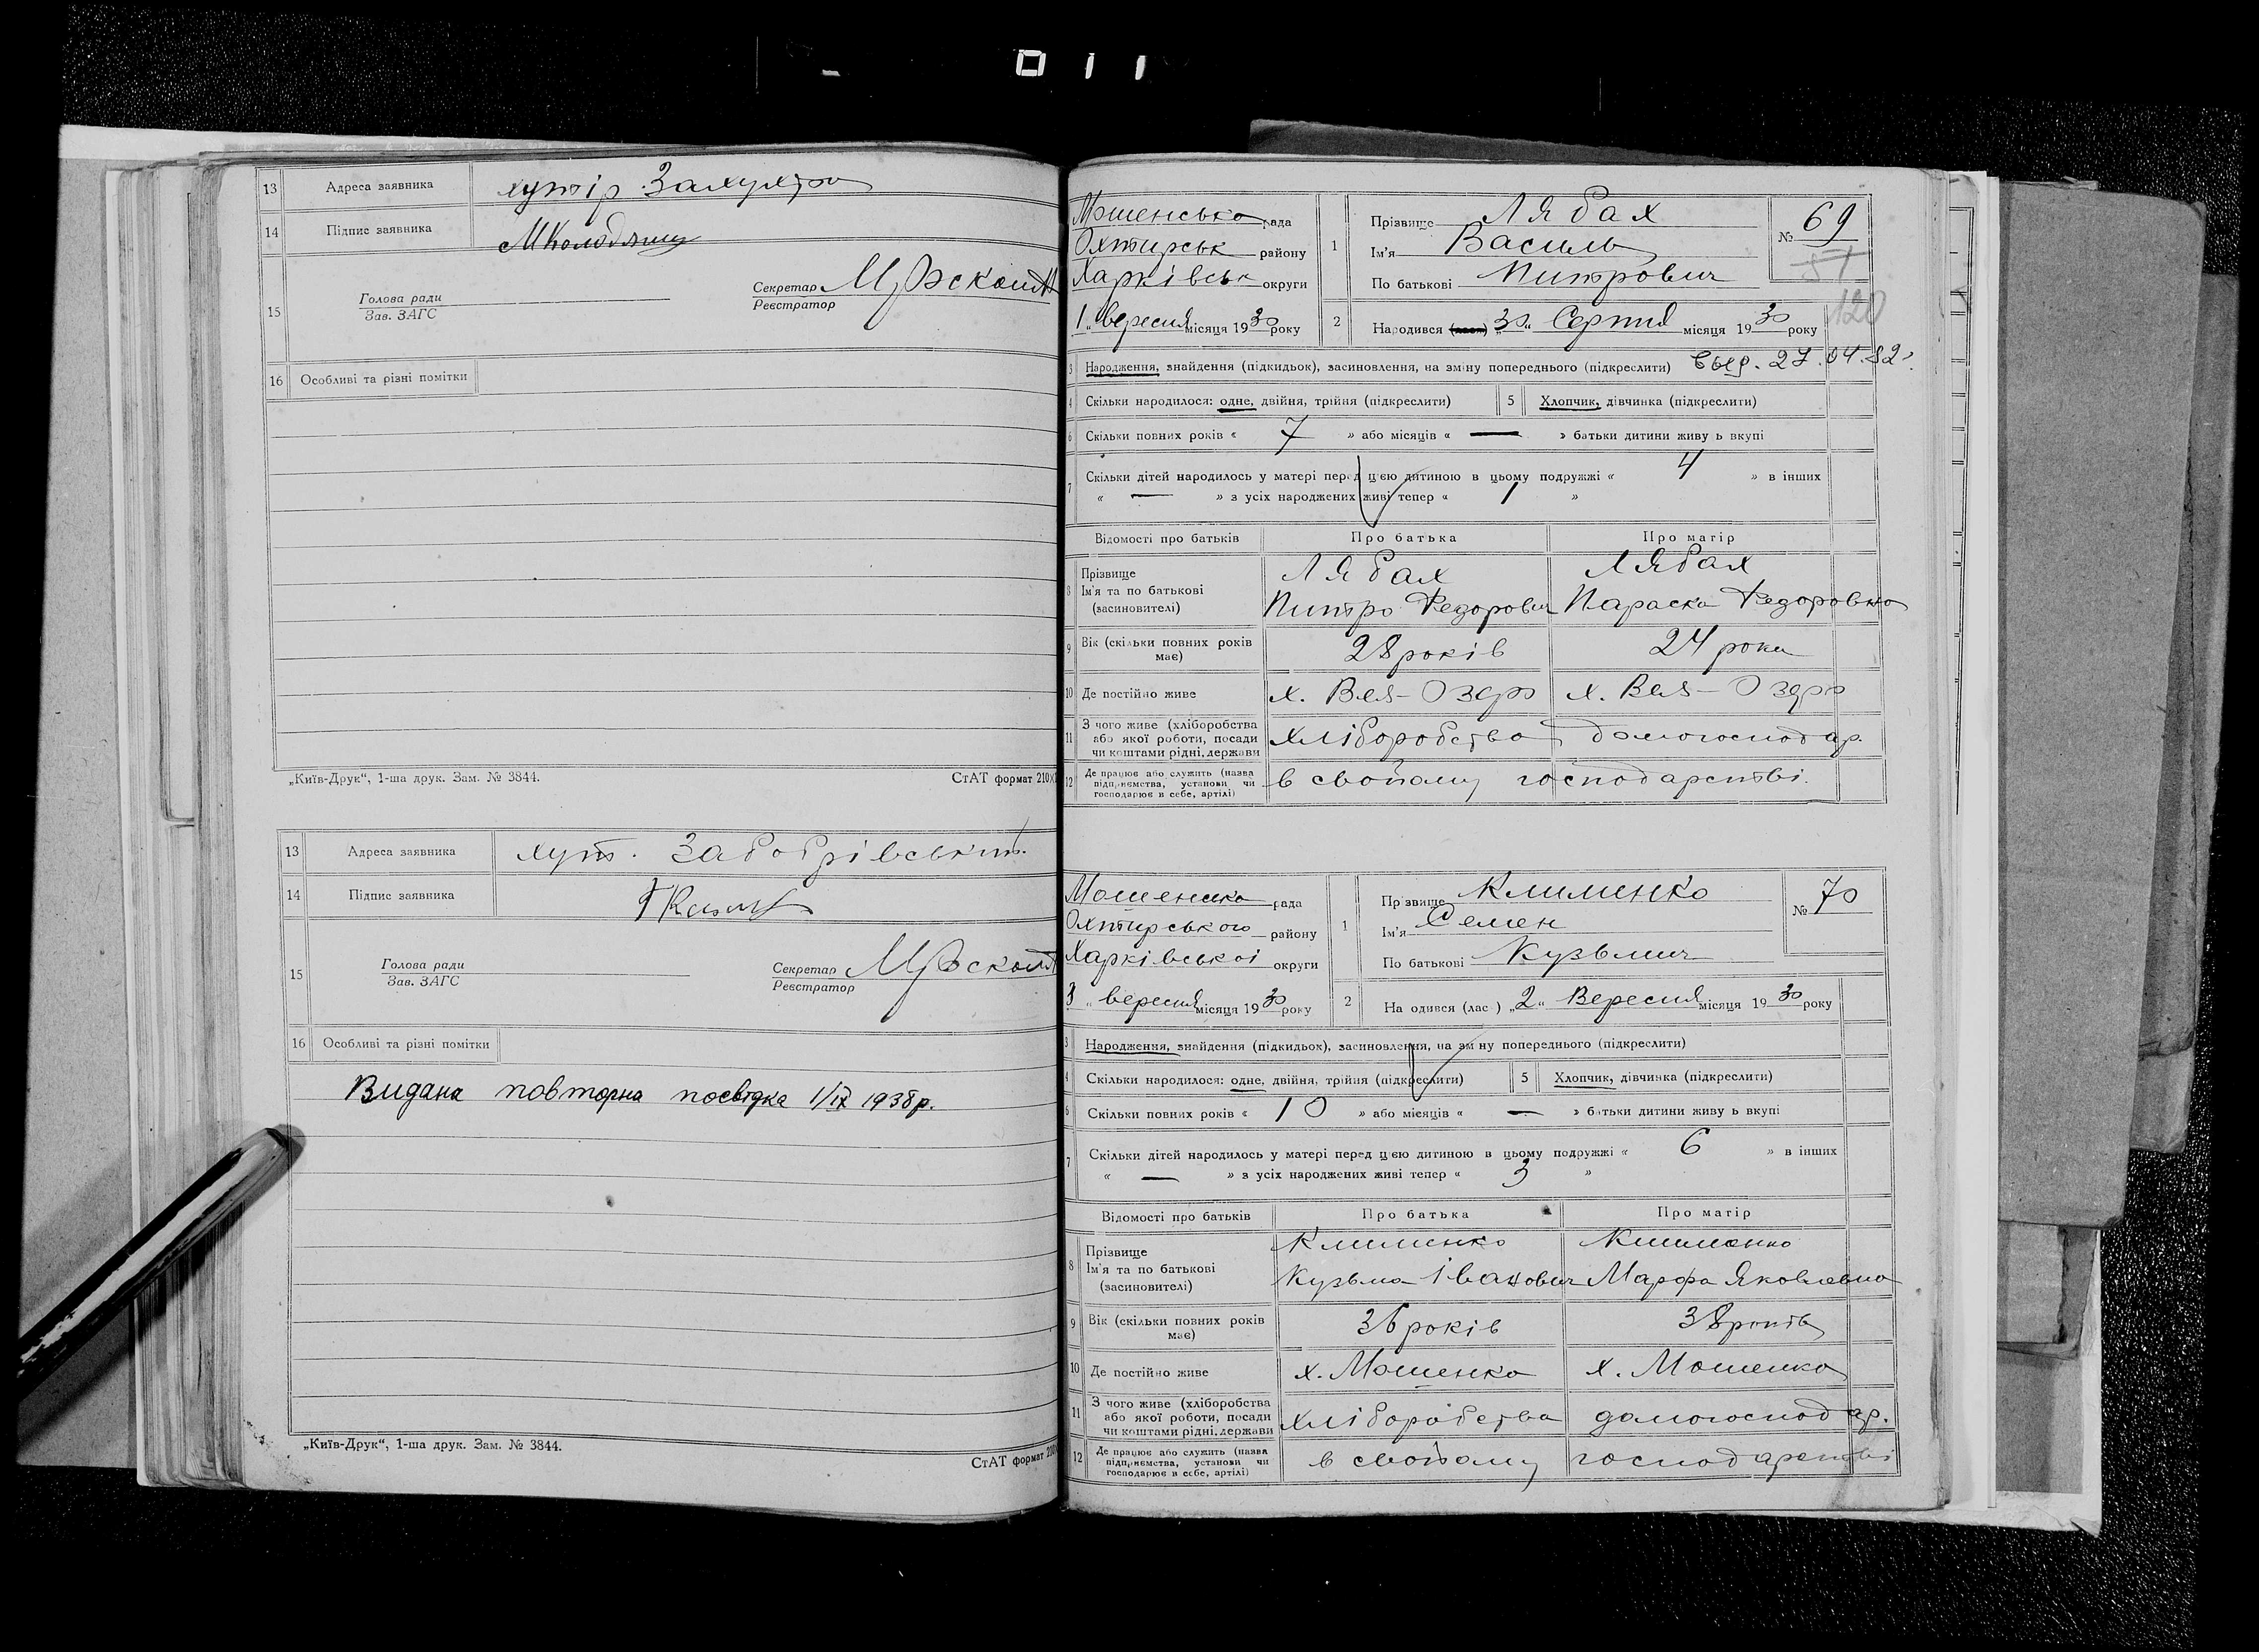 011
13 Адреса заявника хутір Захухра
14 Підпис заявника МКолодяжн
15 Голова ради Зав. ЗАГС Секретар Реєстратор
16 Особливі та різні помітки
„Київ-Друк“, 1-ша друк. Зам. № 3844. СтАТ формат 210×
13 Адреса заявника хут. Забобрівський.
14 Підпис заявника
15 Голова ради Зав. ЗАГС Секретар Реєстратор
16 Особливі та різні помітки
Видана повторна посвідка 1/IX 1938 р.
„Київ-Друк“, 1-ша друк. Зам. № 3844. СтАТ формат 210
Мошенська рада
Охтирськ району
Харківськ округи
1 „ вересня місяця 1930 року
1 Прізвище Лябах
Ім'я Василь
По батькові Питрович
№ 69
57
120
2 Народився (лась) „30“ Серпня місяця 1930 року
3 Народження, знайдення (підкидьок), засиновлення, на зміну попереднього (підкреслити) выд. 27.04.82.
4 Скільки народилося: одне, двійня, трійня (підкреслити) 5 Хлопчик, дівчинка (підкреслити)
6 Скільки повних років « 7 » або місяців « — » батьки дитини живуть вкупі
7 Скільки дітей народилось у матері перед цією дитиною в цьому подружжі « 4 » в інших
« — » з усіх народжених живі тепер « 1 »
Відомості про батьків Про батька Про матір
8 Прізвище Лябах Лябах
Ім'я та по батькові (засновителі) Питро Федорович Параска Федоровна
9 Вік (скільки повних років має) 28 років 24 роки
10 Де постійно живе х. Вел-Озеро х. Вел-Озеро
11 З чого живе (хліборобства або якої роботи, посади чи коштами рідні, держави хліборобства домогосподар.
12 Де працює або служить (назва підприємства, установи чи господарює в себе, артілі) в свойому господарстві.
Мошенська рада
Охтирського району
Харківської округи
3 „ вересня місяця 1930 року
1 Прізвище Клименко
Ім'я Семен
По батькові Кузьмич
№ 70
2 Народився (лась) „2“ Вересня місяця 1930 року
3 Народження, знайдення (підкидьок), засиновлення, на зміну попереднього (підкреслити)
4 Скільки народилося: одне, двійня, трійня (підкреслити) 5 Хлопчик, дівчинка (підкреслити)
6 Скільки повних років « 10 » або місяців « — » батьки дитини живуть вкупі
7 Скільки дітей народилось у матері перед цією дитиною в цьому подружжі « 6 » в інших
« — » з усіх народжених живі тепер « 3 »
Відомості про батьків Про батька Про матір
8 Прізвище Клименко Клименко
Ім'я та по батькові (засиновителі) Кузьма Іванович Марфа Яковлевна
9 Вік (скільки повних років має) 36 років 38 років
10 Де постійно живе х. Мошенка х. Мошенка
11 З чого живе (хліборобства або якої роботи, посади чи коштами рідні, держави хліборобства домогосподар.
12 Де працює або служить (назва підприємства, установи чи господарює в себе, артілі) в свойому господарстві